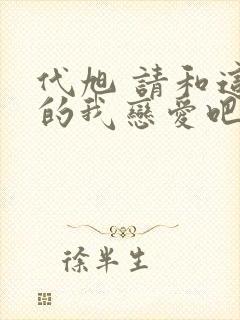 代旭 請和這
的我戀愛吧
徐半生